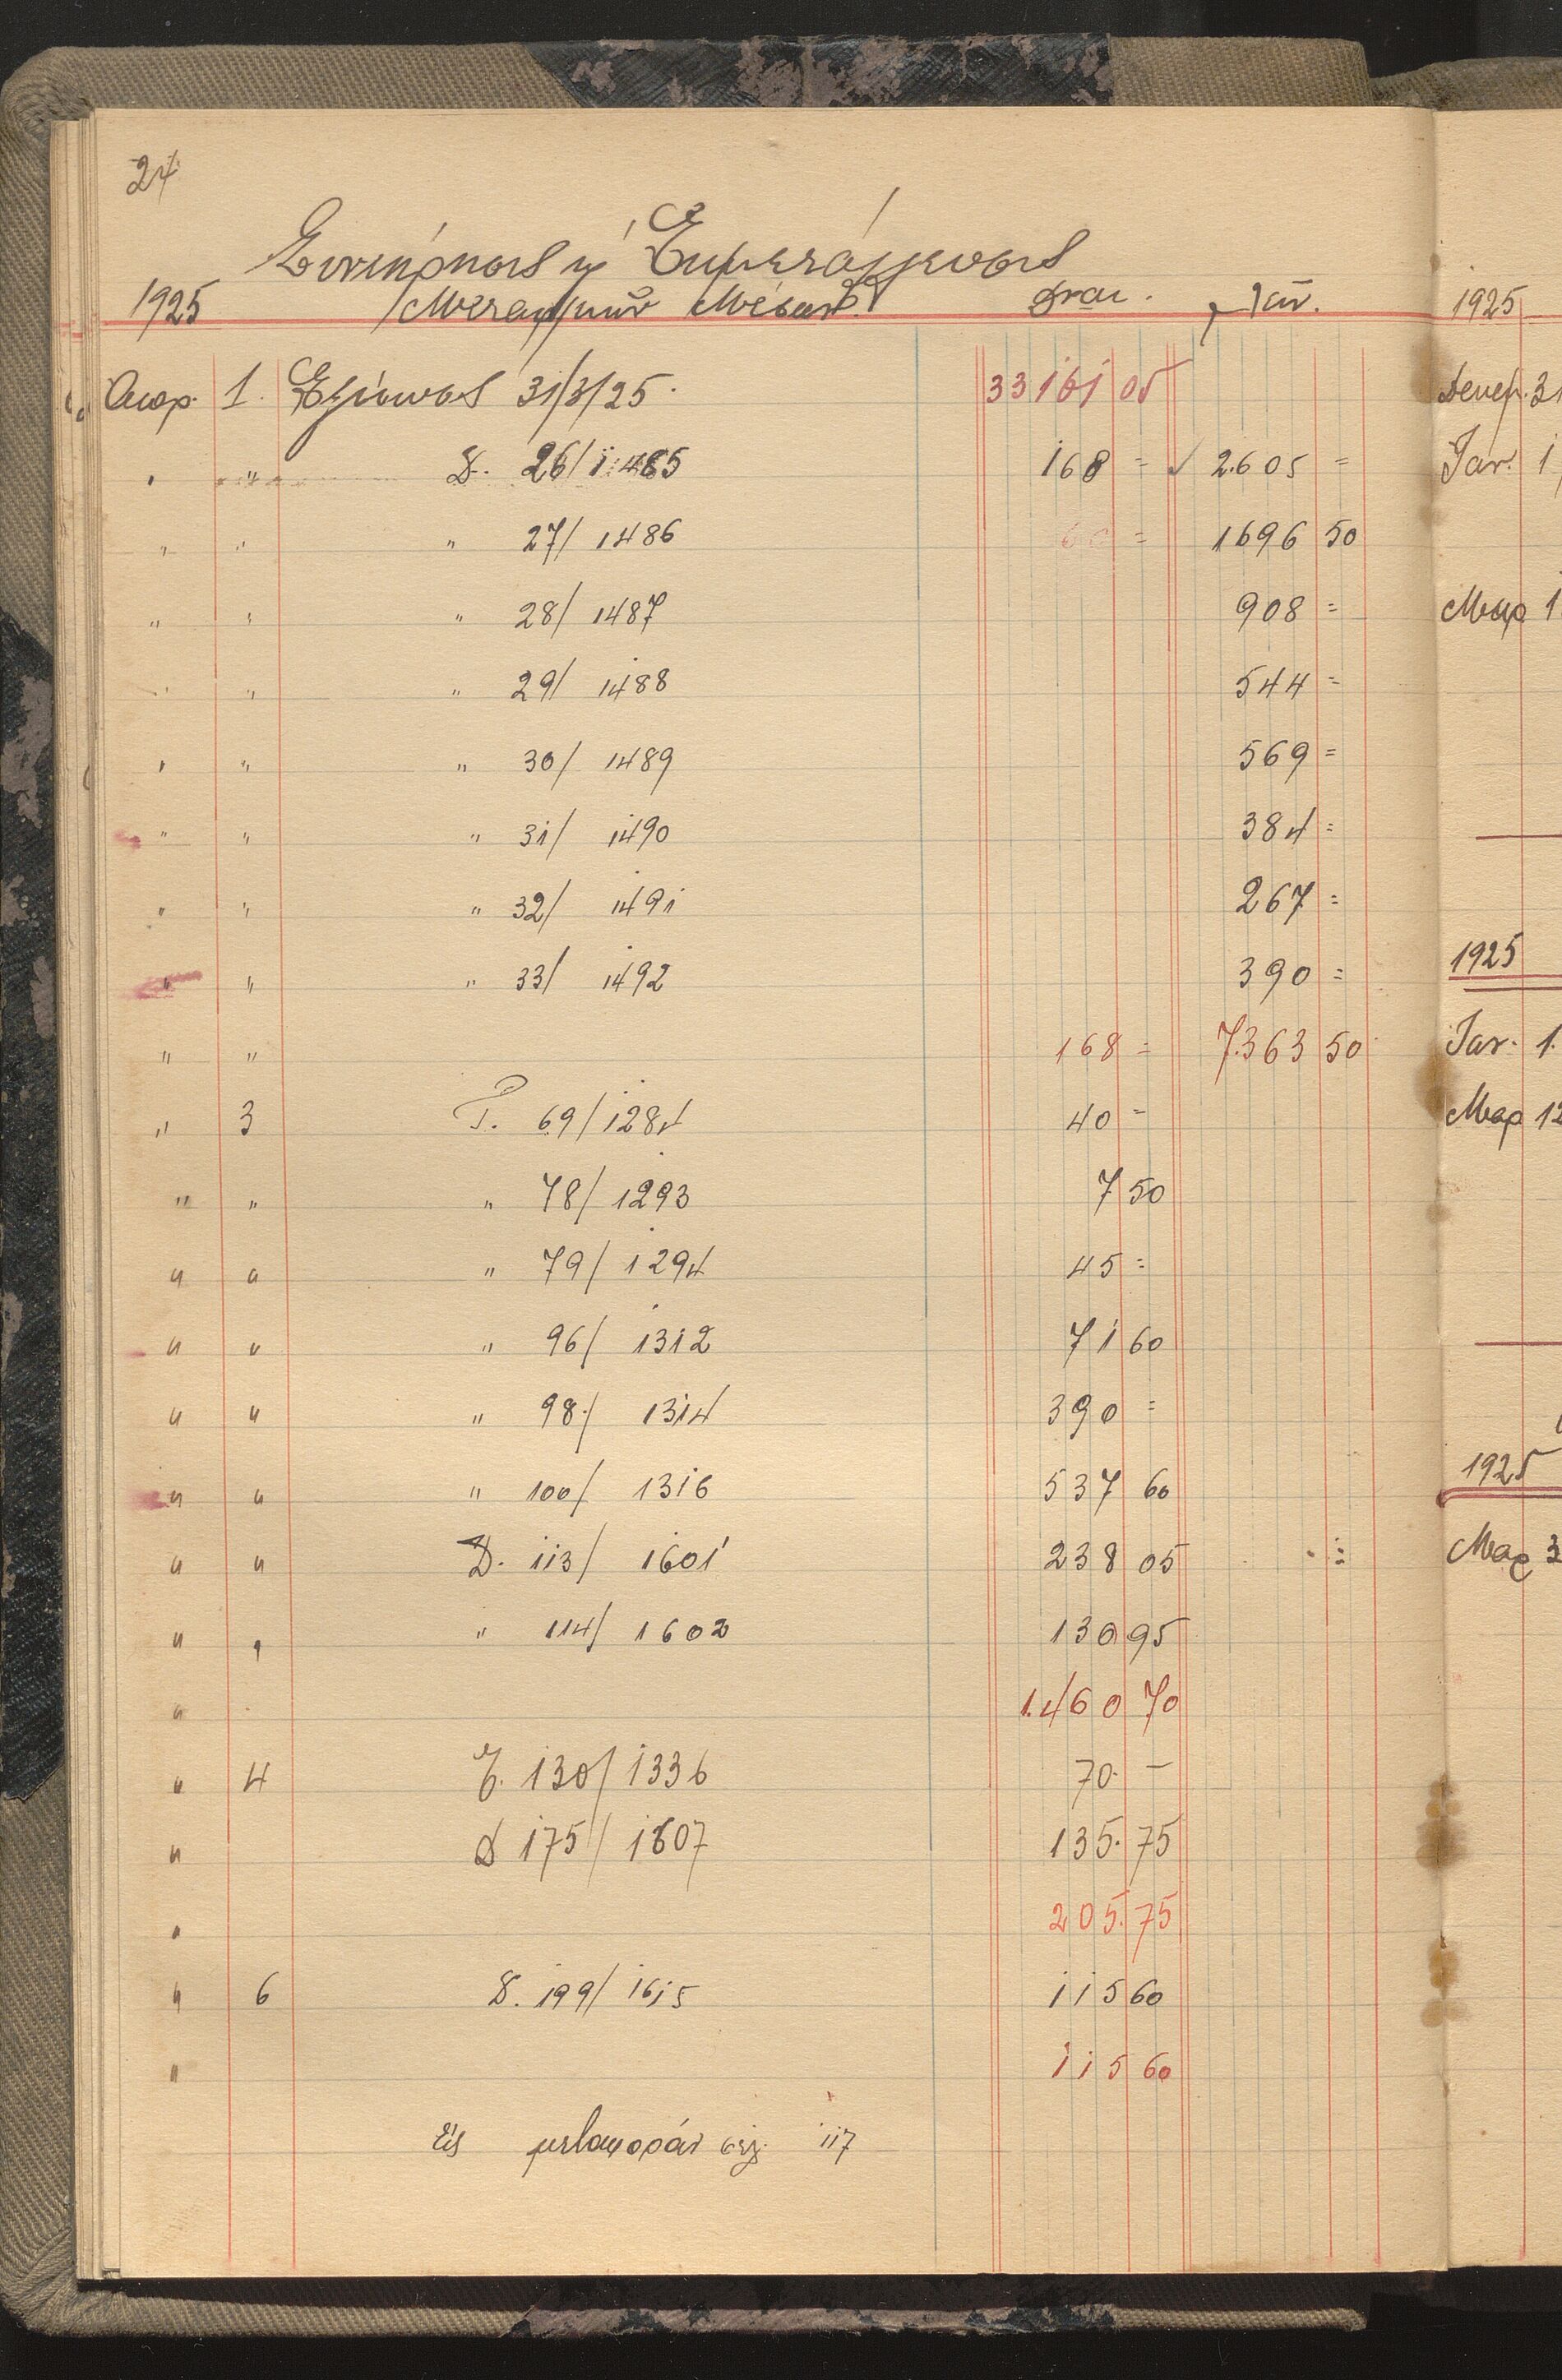 24
Συντήρησις ἢ Ἐκμετάλλευσις
1925 Μεταφικῶν Μέσων. Δναι. Λαν.
Απρ. 1. Εξίσωσις 31/3/25. 33161 05
" " Δ. 26/1485 168 = ✓ 2.605 =
" " " 27/1486 1696 50
" " " 28/1487 908 =
" " " 29/1488 544 =
" " " 30/1489 569 =
" " " 31/1490 384 =
" " " 32/1491 267 =
" " " 33/1492 390 =
" " 168 = 7.363 50
" 3 Τ. 69/1284 40 =
" " " 78/1293 7 50
" " " 79/1294 45 =
" " " 96/1312 71 60
" " " 98/1314 390 =
" " " 100/1316 537 60
" " Δ. 113/1601 238 05
" " " 114/1602 130 95
" 1.460 70
" 4 Τ. 130/1336 70. —
" Δ 175/1607 135. 75
" 205. 75
" 6 Δ. 199/1615 115 60
" 115 60
Εἰς μεταφοράν σελ. 117
1925
Δεκεμ. 31
Ιαν. 1
Μαρ 1
1925
Ιαν. 1.
Μαρ 12
1925
Μαρ 3